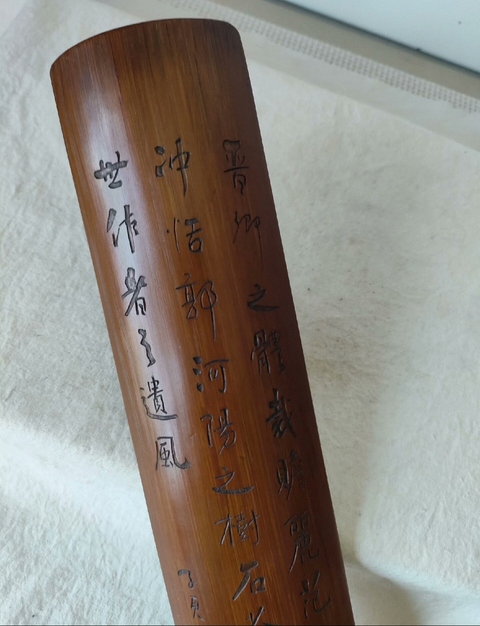 晋卿之體裁贍麗范
冲恬郭河陽之樹石
世作者之遺風